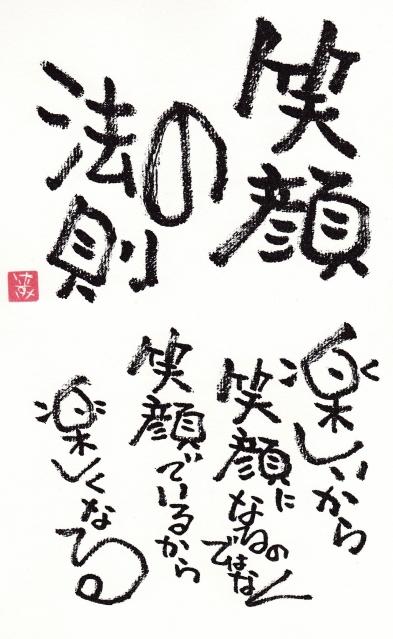 笑顔
の
法則
楽しいから
笑顔に
なるの
ではない
笑顔でいるから
楽しくなる